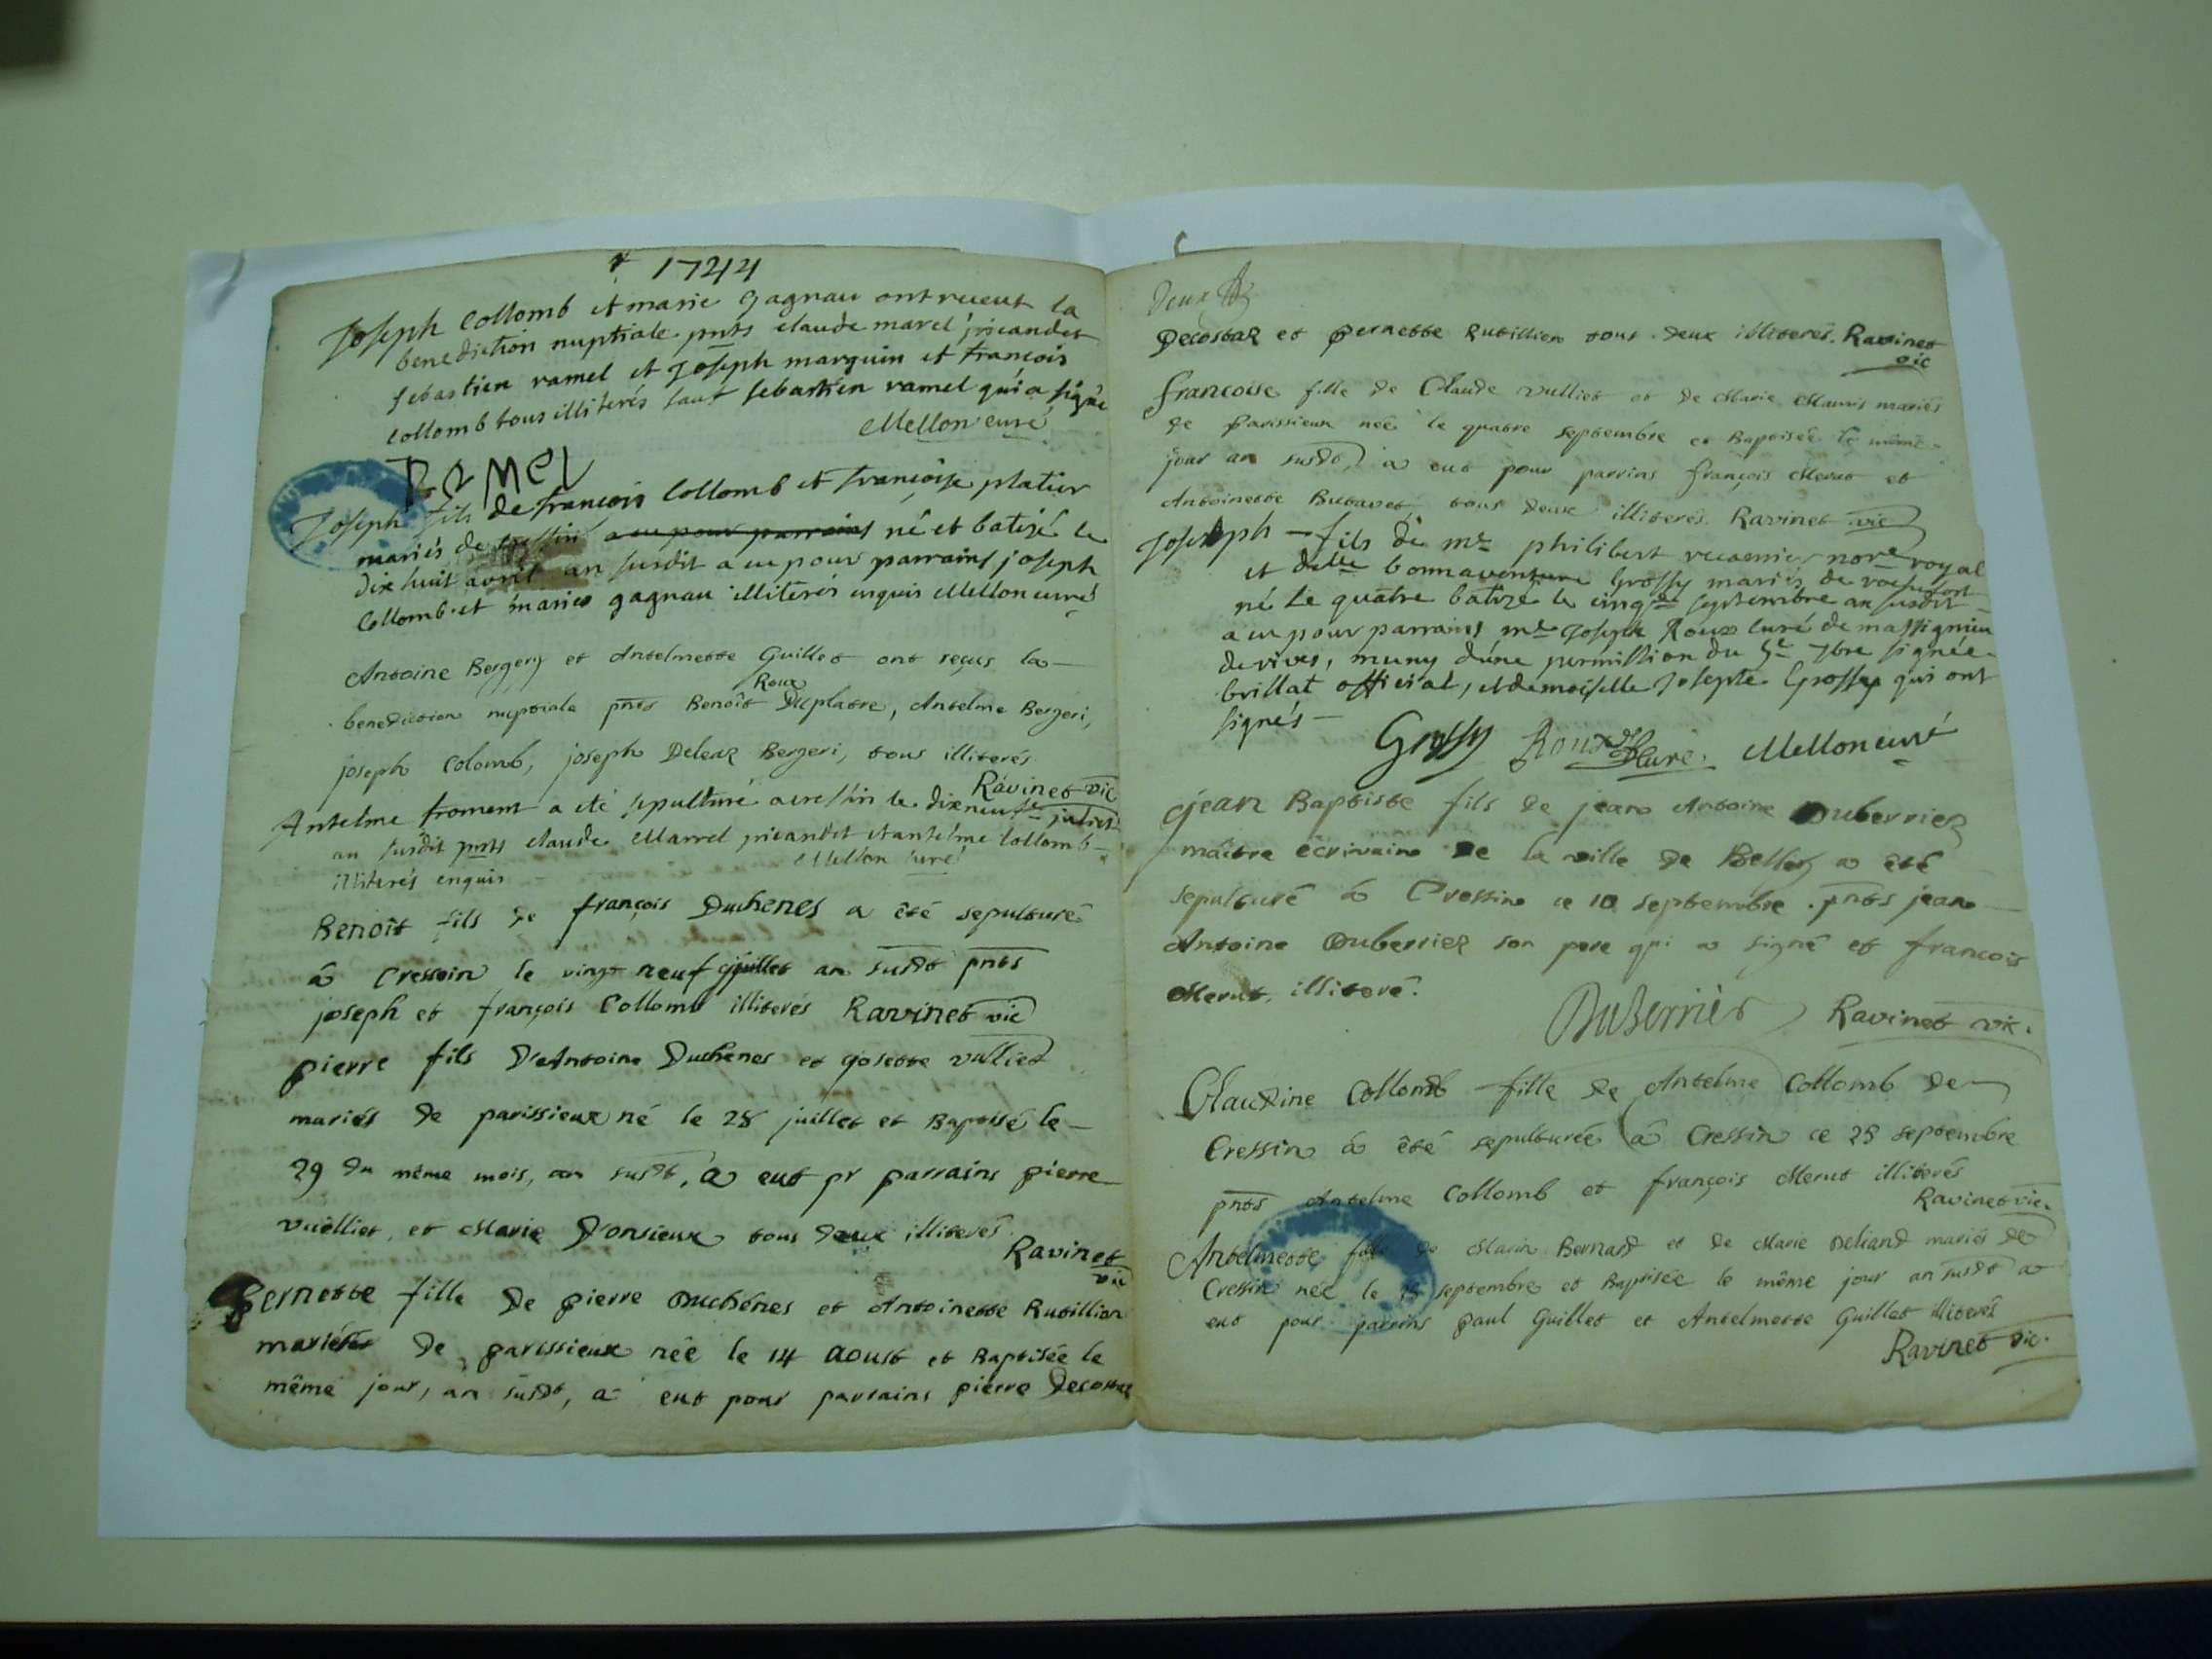 1744
Joseph Collomb et marie gagnau ont receut la
benediction nuptiale pnts claude marel picandet
sebastien ramel et Joseph marguin et françois
collomb tous illiterés sauf sebastien ramel qui a signé
Mellon curé
RAMEL
Joseph fils de françois Collomb et françoise platier
mariés de cressin a eu pour parrains né et batisé le
dix huit avril an susdit a eu pour parrains joseph
Collomb et marie gagnau illiterés enquis Mellon curé
Antoine Bergery et Antelmette Guillet ont reçus la
Roux
benediction nuptiale pnts Benoît Duplatre, Antelme Bergeri,
joseph Colomb, joseph Deleaz Bergeri, tous illiterés
Ravinet vic
Antelme froment a eté sepulturé a cressin le dixneuf juliet
an susdit pnts claude Marrel picandet et antelme Collomb
illiterés enquis Mellon curé
Benoît fils de françois Duchenes a êté sepulturé
â Cressin le vingt neuf juillet an susdt pnts
joseph et françois Collomb illiterés Ravinet vic
pierre fils D'Antoine Duchenes et josette vulliet
mariés de parissieux né le 28 juillet et Baptisé le
29 du même mois, an susdt, a eut pr parrains pierre
vuilliet, et Marie Donsieux tous deux illiterés.
Ravinet
vic
Pernette fille De pierre Duchênes et Antoinette Rutillion
mariés de parissieux née le 14 Aoust et Baptisée le
même jour, an susdt, a eut pour parrains pierre Decostaz
Deux
Decostaz et pernette Rutillion tous deux illiterés. Ravinet
vic
françoise fille de Claude vulliet et de Marie Mauris mariés
de parissieux née le quatre septembre et Baptisée le même
jour an susdt, a eut pour parrins françois Merut et
Antoinette Butavet, tous deux illiterés. Ravinet vic
Joseph fils de mre philibert recamier nore royal
et delle bonnaventure Grossy mariés de rochefort
né le quatre batizé le cinq septembre an susdit
a eu pour parrains mre Joseph Roux curé de massignieu
de rives, muny d'une permission du 5e 7bre signée
brillat official, et demoiselle Josepte Grossy qui ont
signés
Grossy Roux Curé. Mellon curé
jean Baptiste fils de jean Antoine Duberriez
maître écrivain De la ville de Belley a êté
sepulturé â Cressin ce 10 septembre. pnts jean
Antoine Duberriez son pere qi a signé et francois
Merut, illiteré.
DuBerrier Ravinet vic.
Claudine Collomb fille de Antelme Collomb de
Cressin â êté sepulturée â Cressin ce 25 septembre
pnts Antelme Collomb et françois Merut illiterés
Ravinet vic.
Antelmette fille de Marin Bernard et de Marie Deliand mariés de
Cressin née le septembre et Baptisée le même jour an susdt a
eut pour parrins paul Guillet et Antelmette Guillet illiterés
Ravinet vic.